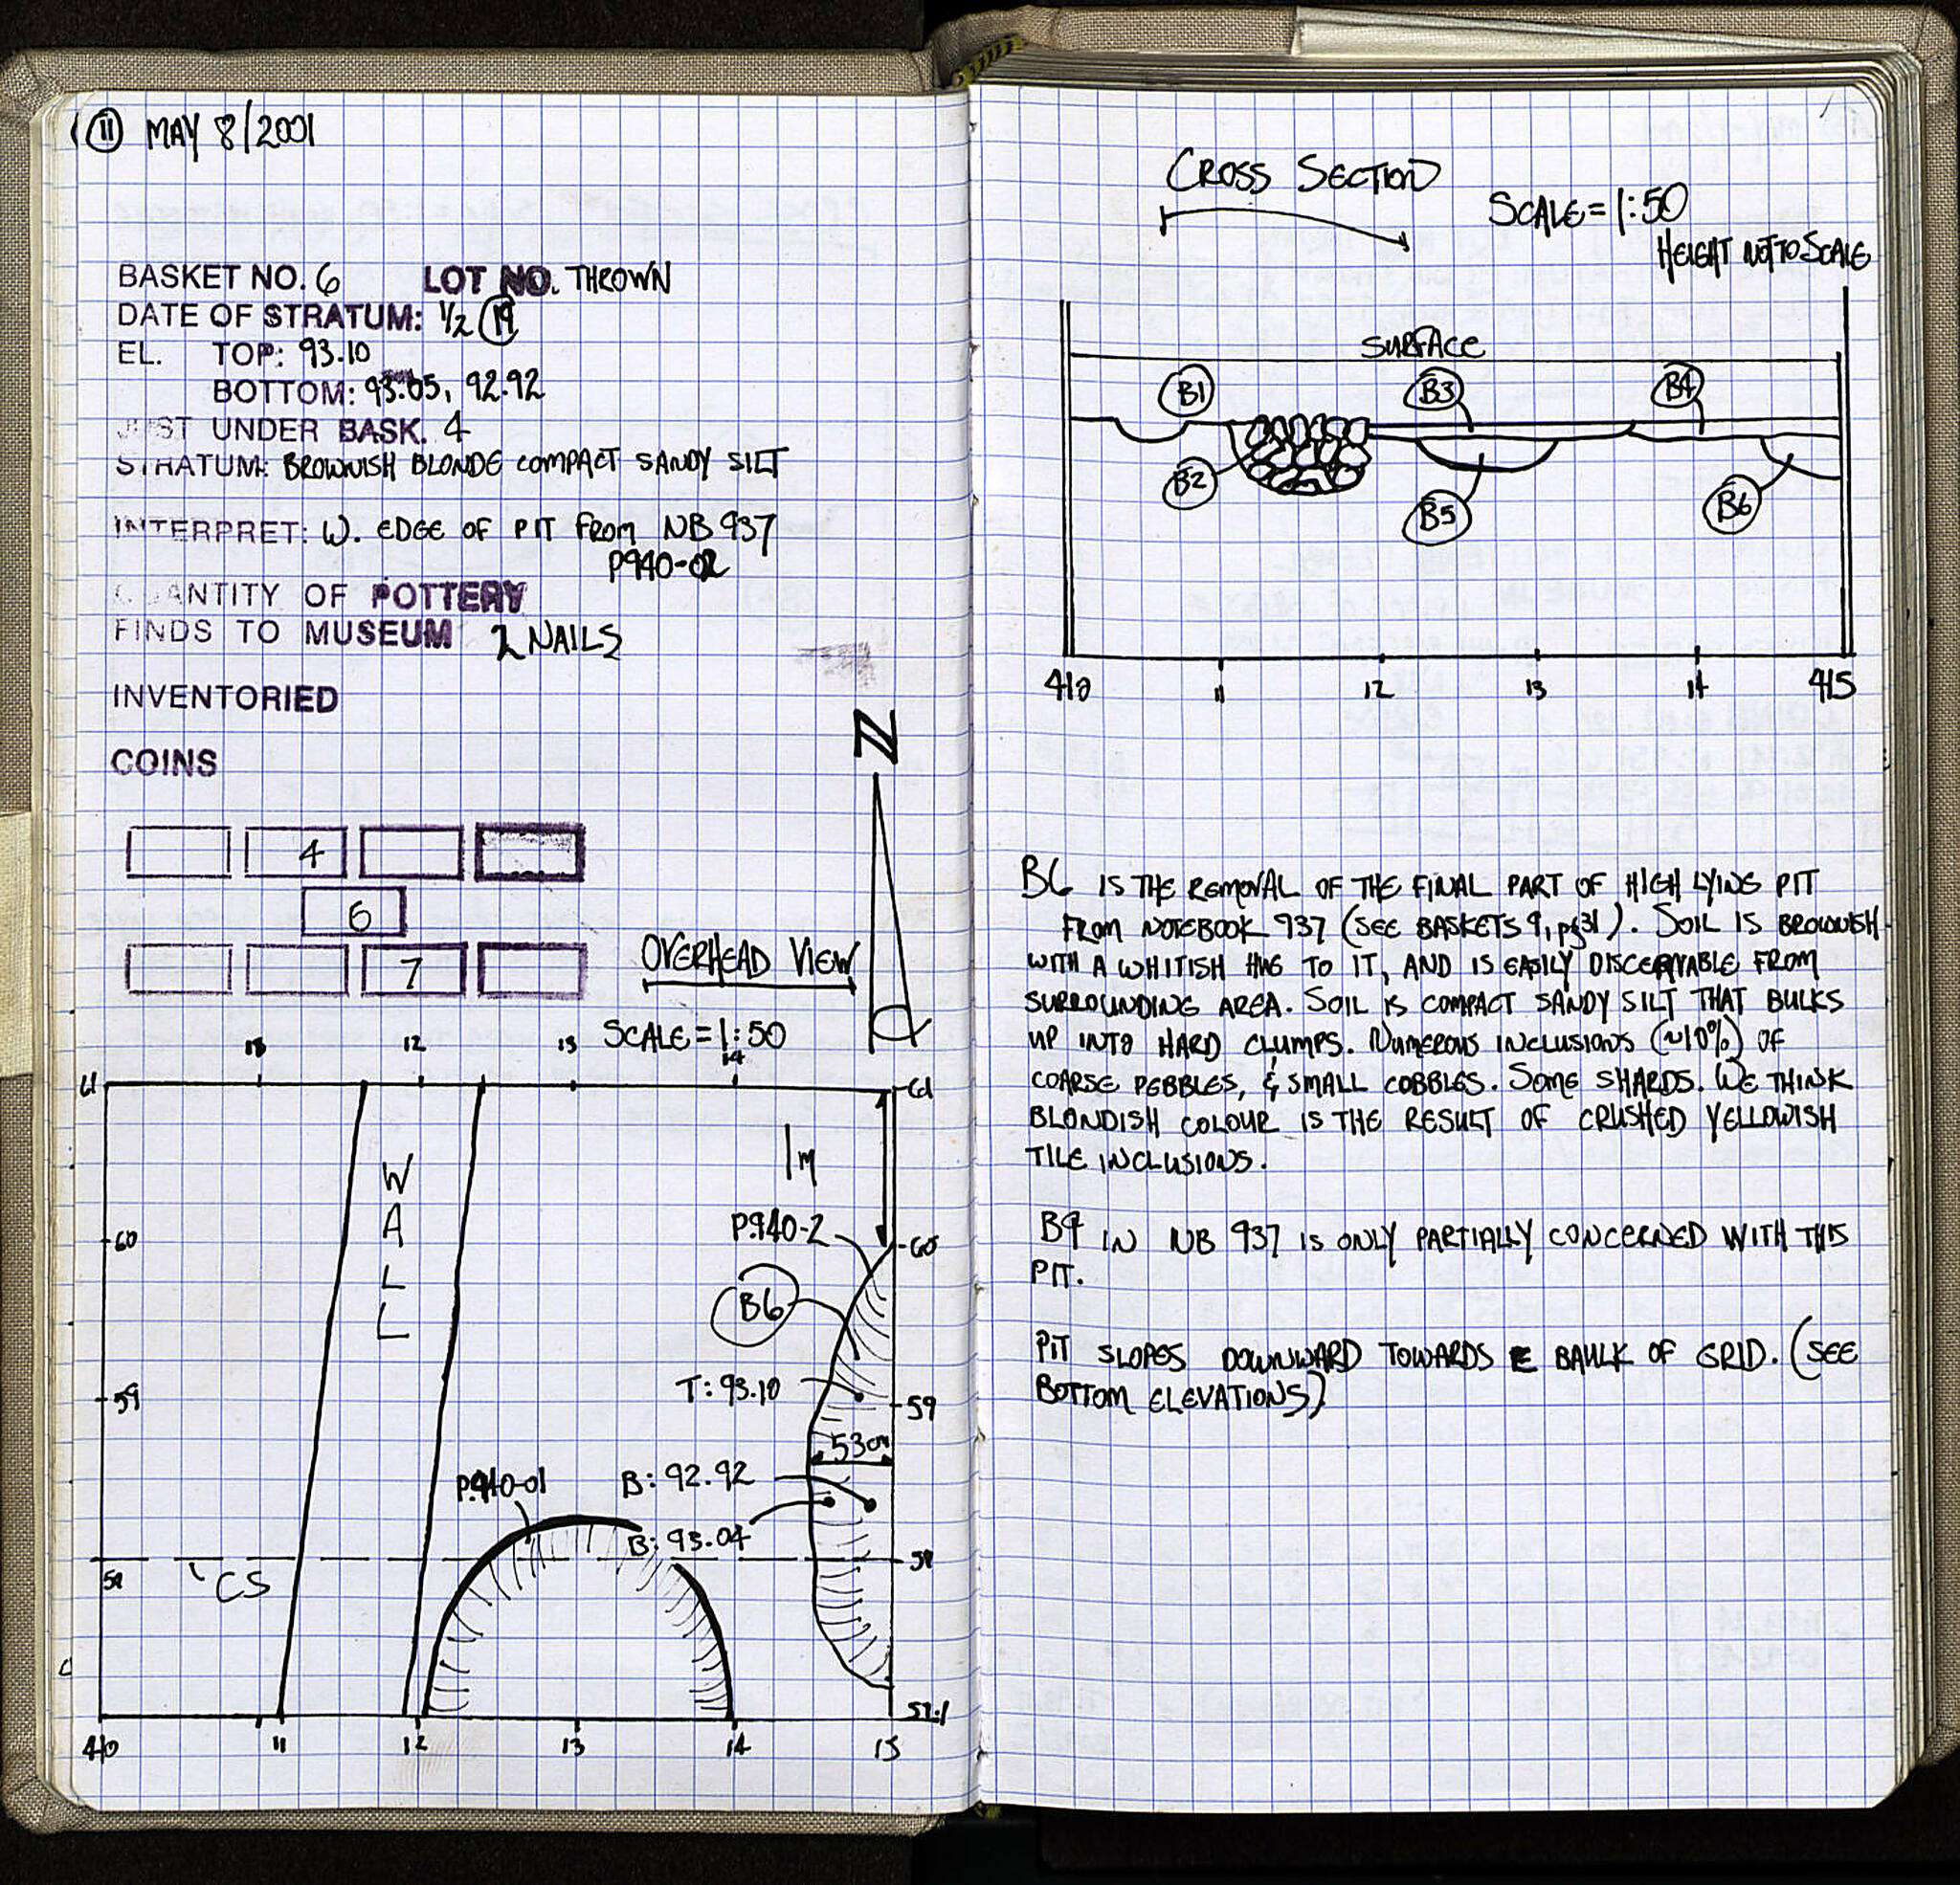 11 MAY 8/2001
BASKET NO. 6 LOT NO. THROWN
DATE OF STRATUM: 1/2 19
EL. TOP: 93.10
BOTTOM: 93.05, 92.92
JUST UNDER BASK. 4
STRATUM: BROWNISH BLONDE COMPACT SANDY SILT
INTERPRET: W. EDGE OF PIT FROM NB 937
P940-02
QUANTITY OF POTTERY
FINDS TO MUSEUM 2 NAILS
INVENTORIED
COINS
N
4
6
7
OVERHEAD VIEW
SCALE = 1:50
12 13 14
61 61
1m
WALL
P.940-2
60 60
B6
T: 93.10
59 59
53cm
P.940-01 B: 92.92
B: 93.04
58 58
CS
57.1
410 11 12 13 14 15
CROSS SECTION
SCALE = 1:50
HEIGHT NOT TO SCALE
SURFACE
B1 B3 B4
B2 B5 B6
410 11 12 13 14 415
B6 IS THE REMOVAL OF THE FINAL PART OF HIGH LYING PIT
FROM NOTEBOOK 937 (SEE BASKETS 9, pg31). SOIL IS BROWNISH
WITH A WHITISH HUE TO IT, AND IS EASILY DISCERNABLE FROM
SURROUNDING AREA. SOIL IS COMPACT SANDY SILT THAT BULKS
UP INTO HARD CLUMPS. NUMEROUS INCLUSIONS (~10%) OF
COARSE PEBBLES, & SMALL COBBLES. SOME SHARDS. WE THINK
BLONDISH COLOUR IS THE RESULT OF CRUSHED YELLOWISH
TILE INCLUSIONS.
B9 IN NB 937 IS ONLY PARTIALLY CONCERNED WITH THIS
PIT.
PIT SLOPES DOWNWARD TOWARDS E BAULK OF GRID. (SEE
BOTTOM ELEVATIONS)